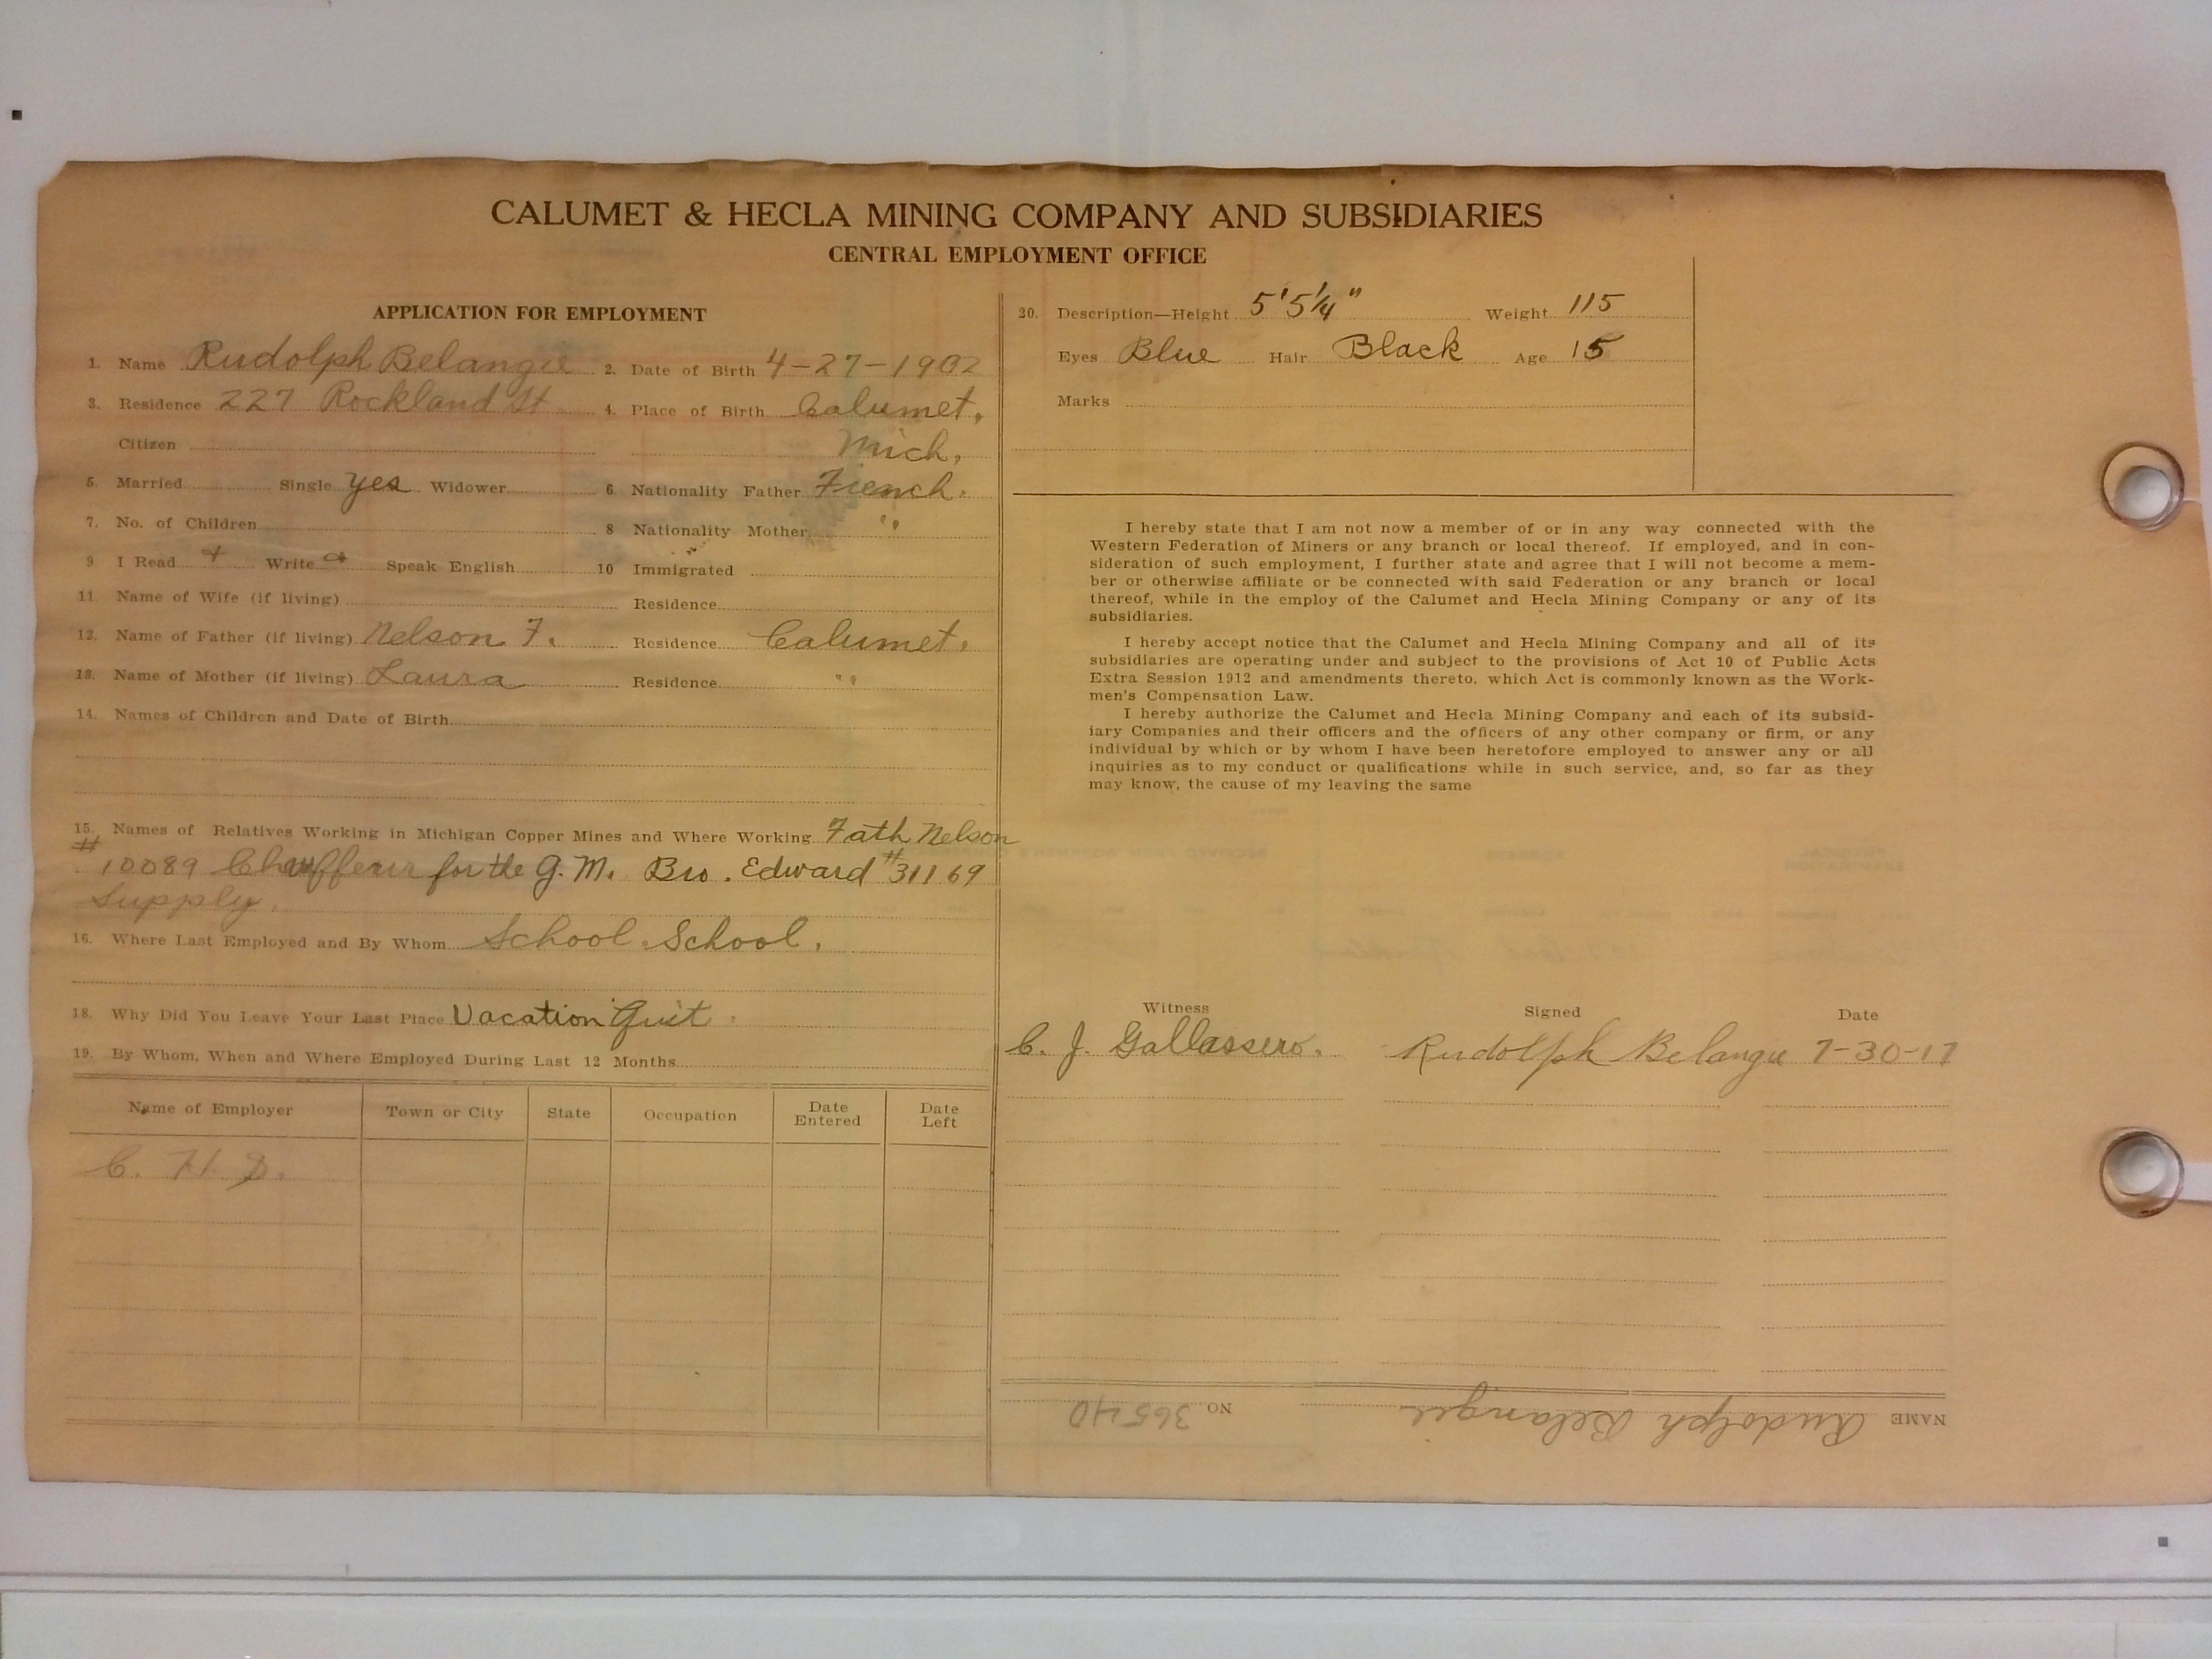 CALUMET & HECLA MINING COMPANY AND SUBSIDIARIES
CENTRAL EMPLOYMENT OFFICE
APPLICATION FOR EMPLOYMENT
1. Name Rudolph Belangie 2. Date of Birth 4-27-1902
3. Residence 227 Rockland St 4. Place of Birth Calumet,
Citizen Mich,
5. Married Single yes Widower 6 Nationality Father French.
7. No. of Children 8 Nationality Mother "
9. I Read Write Speak English 10 Immigrated
11. Name of Wife (if living) Residence
12. Name of Father (if living) Nelson F. Residence Calumet.
13. Name of Mother (if living) Laura Residence "
14. Names of Children and Date of Birth
15. Names of Relatives Working in Michigan Copper Mines and Where Working Fath Nelson
# 10089 Chauffeur for the G. M. Bro. Edward #31169
Supply.
16. Where Last Employed and By Whom School School.
18. Why Did You Leave Your Last Place Vacation Quit.
19. By Whom, When and Where Employed During Last 12 Months
Name of Employer Town or City State Occupation Date Entered Date Left
C. H. S.
20. Description—Height 5'5¼" Weight 115
Eyes Blue Hair Black Age 15
Marks
I hereby state that I am not now a member of or in any way connected with the
Western Federation of Miners or any branch or local thereof. If employed, and in con-
sideration of such employment, I further state and agree that I will not become a mem-
ber or otherwise affiliate or be connected with said Federation or any branch or local
thereof, while in the employ of the Calumet and Hecla Mining Company or any of its
subsidiaries.
I hereby accept notice that the Calumet and Hecla Mining Company and all of its
subsidiaries are operating under and subject to the provisions of Act 10 of Public Acts
Extra Session 1912 and amendments thereto, which Act is commonly known as the Work-
men's Compensation Law.
I hereby authorize the Calumet and Hecla Mining Company and each of its subsid-
iary Companies and their officers and the officers of any other company or firm, or any
individual by which or by whom I have been heretofore employed to answer any or all
inquiries as to my conduct or qualifications while in such service, and, so far as they
may know, the cause of my leaving the same
Witness Signed Date
C. J. Gallassero. Rudolph Belangie 7-30-17
NAME Rudolph Belangie NO 36540